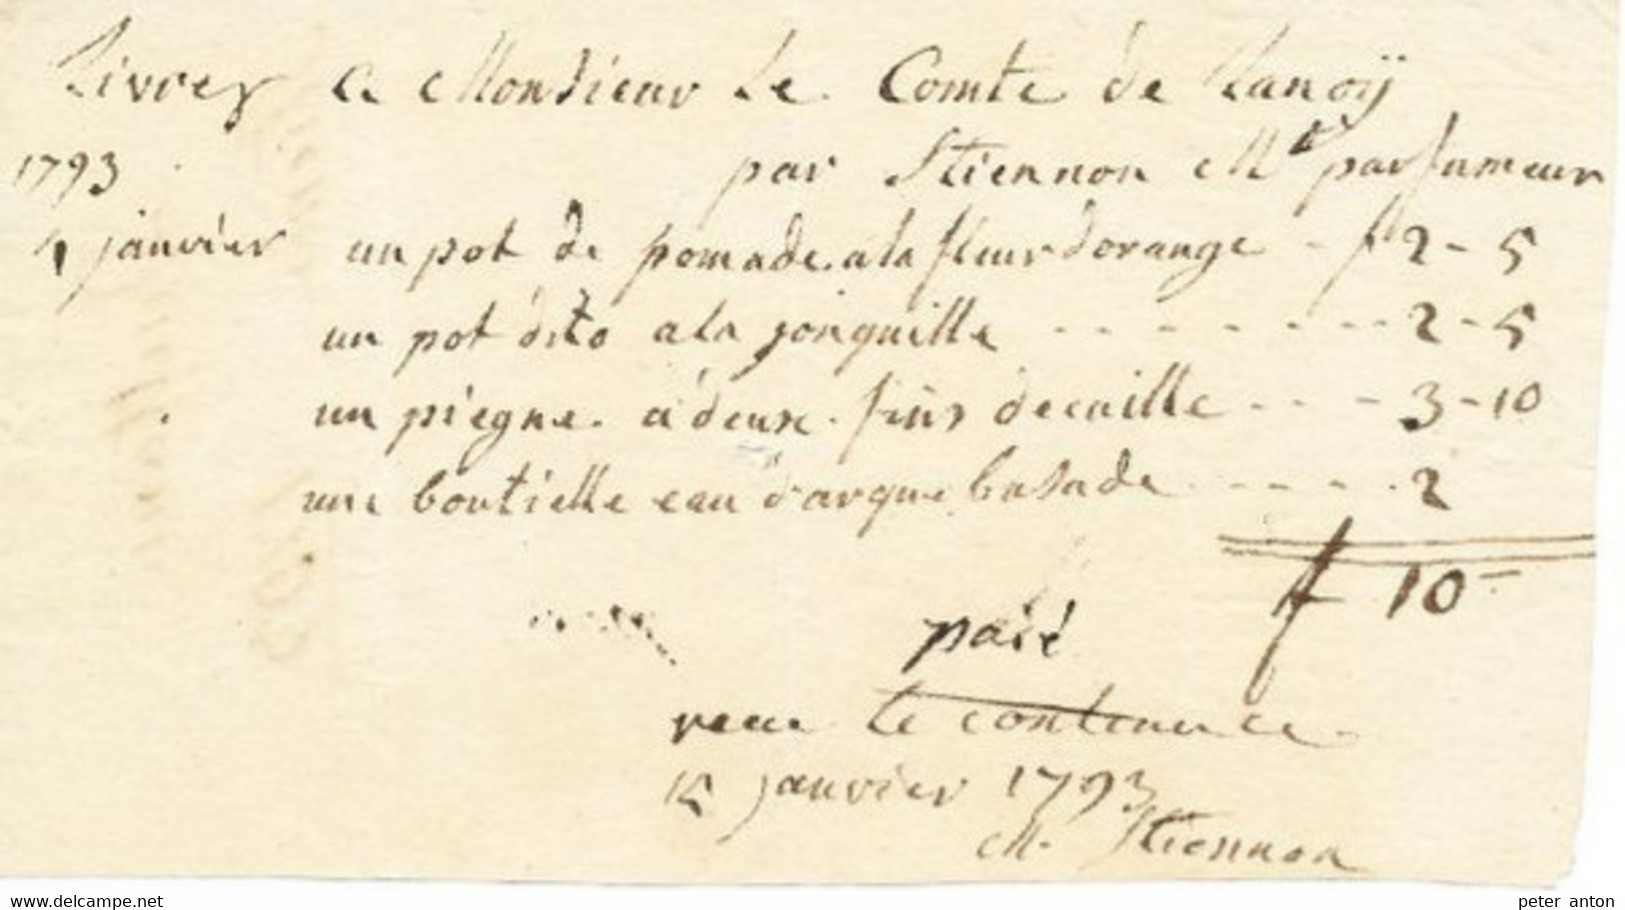 Livrez a Monsieur Le Comte de Lanoÿ
1793 par Stiennon Md parfumeur
4 janvier un pot de pomade a la fleur dorange - f 2 - 5
un pot dito a la jonquille - - - - - - - - 2 - 5
un piegne a deux fins decaille - - - 3 - 10
une boutielle eau d'arquebusade - - - - - 2
f 10 -
paié
receu le contenu ce
15 janvier 1793
M. Stiennon
www.delcampe.net peter anton